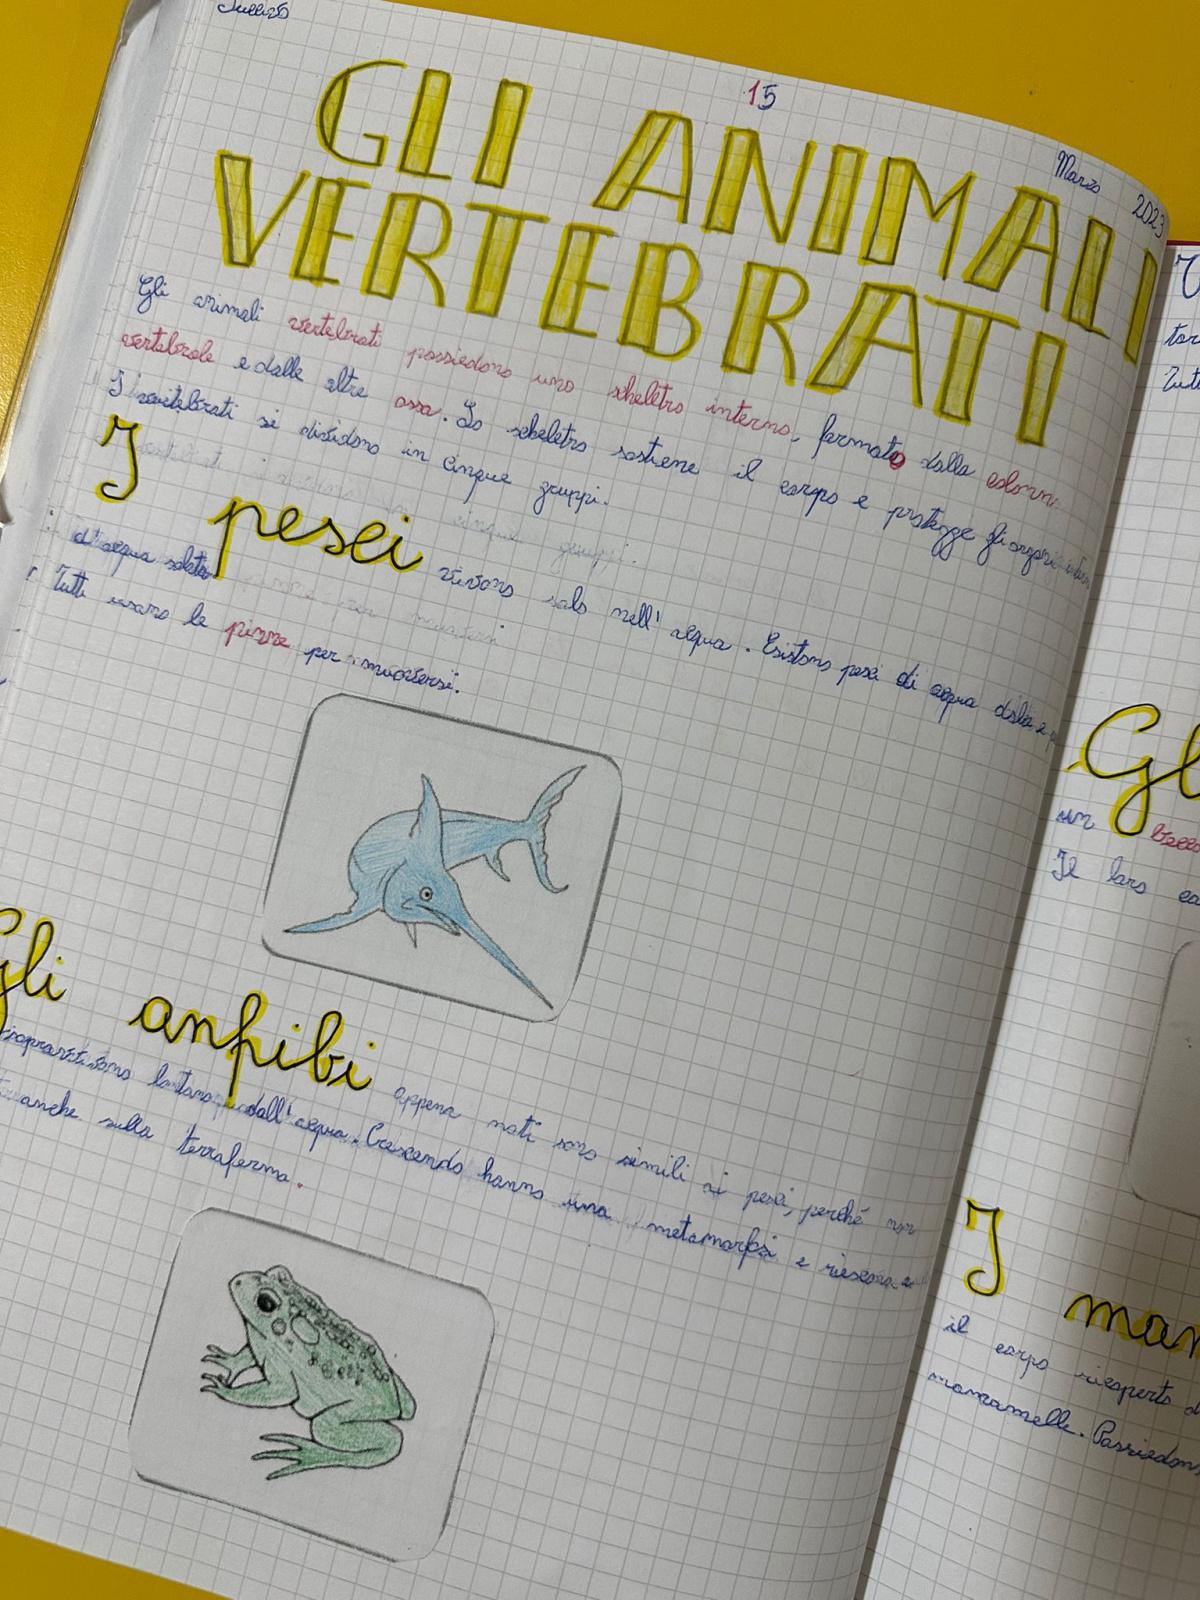 15 Marzo 2023
GLI ANIMALI
VERTEBRATI
Gli animali vertebrati possiedono uno scheletro interno, formato dalla colonn
vertebrale e dalle altre ossa. Lo scheletro sostiene il corpo e protegge gli organi
I vertebrati si dividono in cinque gruppi.
I pesci vivono solo nell'acqua. Esistono pesci di acqua dolce e
d'acqua salata
Tutti usano le pinne per muoversi.
Gli anfibi appena nati sono simili ai pesci, perché non
sopravvivono lontano dall'acqua. Crescendo hanno una metamorfosi e riescono a
anche sulla terraferma.
Tutt
Gl
un becco
Il loro co
I mam
il corpo ricoperto d
mammelle. Possiedono